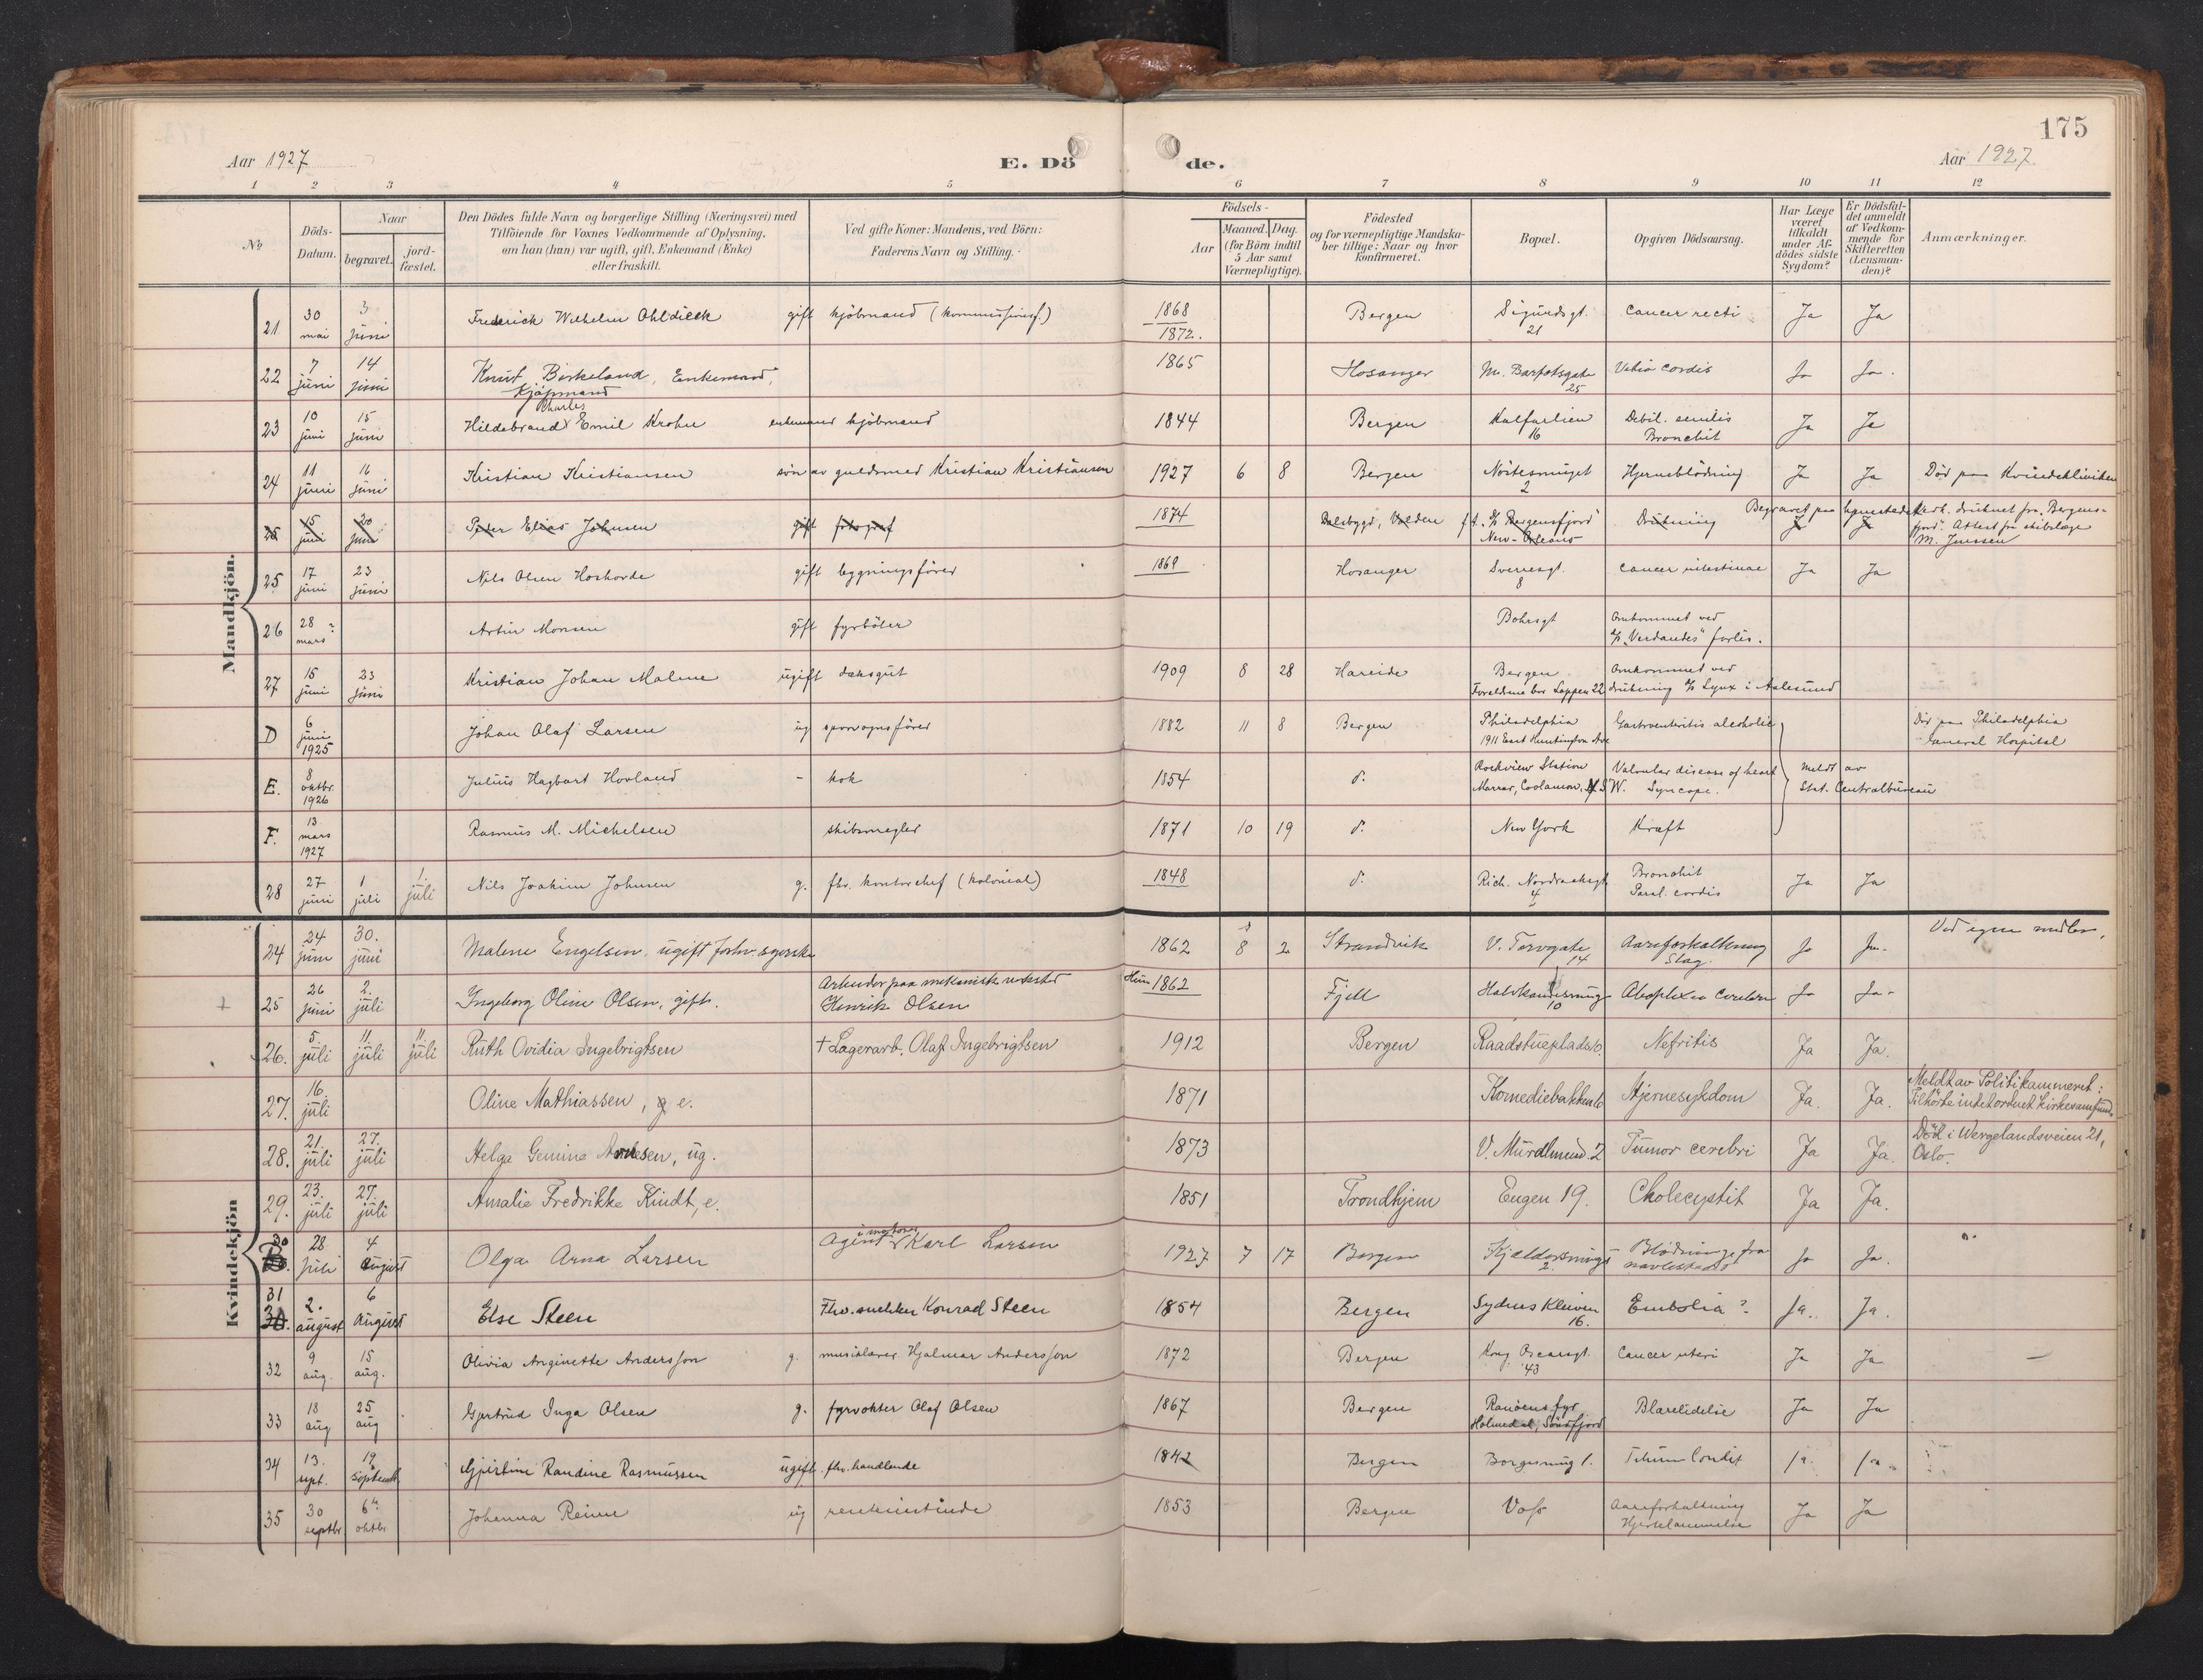 175
Aar 1927
E. Dö de.
Aar 1927.
1 2 3 4 5 6 7 8 9 10 11 12
No.
Döds-Datum.
Naar
begravet.
jord-fæstet.
Den Dödes fulde Navn og borgerlige Stilling (Næringsvei) med
Tilföiende for Voxnes Vedkommende af Oplysning,
om han (hun) var ugift, gift, Enkemand (Enke)
eller fraskilt.
Ved gifte Koner: Mandens, ved Börn:
Faderens Navn og Stilling.
Födsels-
Aar
Maaned. Dag.
(for Börn indtil
5 Aar samt
Værnepligtige).
Födested
og for værnepligtige Mandska-
ber tillige: Naar og hvor
konfirmeret.
Bopæl.
Opgiven Dödsaarsag.
Har Læge
været
tilkaldt
under Af-
dödes sidste
Sygdom?
Er Dödsfal-
det anmeldt
af Vedkom-
mende for
Skifteretten
(Lensman-
den)?
Anmærkninger.
Mandkjön.
21 30 mai 3 juni Frederick Wilhelm Ohldieck gift kjöbmand 1868 1872. Bergen Sigurdsgt. 21 Cancer recti Ja Ja
22 7 juni 14 juni Knut Birkeland, Enkemand, Kjöpmand 1865 Hosanger 25 cordis Ja Ja.
23 10 juni 15 juni Hildebrand Charles Emil Krohn enkemand kjöbmand 1844 Bergen Kalfarlien 16 Debil. senilis Bronchit Ja Ja
24 11 juni 16 juni Kristian Kristiansen sön av guldsmed Kristian Kristiansen 1927 6 8 Bergen Nöstesmuget 2 Hjerneblödning Ja Ja Död paa Kvindeklinikken
25 15 juni 20 juni Peter Elias Johnsen gift fotograf 1874 Dalsbygd, Volden f.t. S/S "Bergensfjord" New-Orleans Drukning Begravet paa hjemstedets kirk. druknet fra "Bergens-
fjord". Attest fra skibslæge
M. Jenssen
25 17 juni 23 juni Nils Olsen Hoshovde gift bygningsförer 1869 Hosanger Sverresgt. 8 Cancer intestinae Ja Ja
26 28 mars? Artur Monsen gift fyrböter Bohrsgt Omkommet ved
S/S "Verdandes" forlis.
27 15 juni 23 juni Kristian Johan Malme ugift dæksgut 1909 8 28 Hareide Bergen
Foreldrene bor Loppen 22 Omkommet ved
drukning S/S Lynx i Aalesund
D 6 juni 1925 Johan Olaf Larsen ug sporvognsförer 1882 11 8 Bergen Philadelphia
1911 East Huntington Ave Gastroenteritis alcoholic Död paa Philadelphia
General Hospital
E. 8 oktbr. 1926 Julius Hagbart Hovland - kok 1854 d. Rockview Station
Marrar, Coolamon, N.S.W. Valvular disease of heart
Syncope. Meldt av
Stat. Centralbureau
F. 13 mars 1927 Rasmus M. Michelsen skibsmegler 1871 10 19 d. New York Kræft
28 27 juni 1 juli 1. juli Nils Joakim Johnsen g. fhv. kontorchef (kolonial) 1848 d. Rich. Nordraaksgt 4 Bronchit
Paral. cordis Ja Ja
Kvindekjön
24 24 juni 30. juni Malene Engelsen, ugift forhv. syerske 1862 8 2 Strandvik V. Torvgate 14 Aareforkalkning
Slag. Ja Ja.
25 26 juni 2. juli Ingeborg Oline Olsen, gift. Arbeider paa mekanisk verksted
Henrik Olsen Hun 1862 Fjell 10 Ja Ja.
26. 5. juli 11. juli 11. juli Ruth Ovidia Ingebrigtsen † Lagerarb. Olaf Ingebrigtsen 1912 Bergen Raadstueplads 10. Nefritis Ja Ja.
27. 16. juli Oline Mathiassen, e. 1871 Komediebakken 10 Hjernesykdom Ja. Ja. Meldt av Politikammeret:
Tilhörte intet ordnet kirkesamfund.
28. 21. juli 27. juli Helga Gemine Arnesen, ug. 1873 V. Muralmend. 2 Tumor cerebri Ja Ja. Död i Wergelandsveien 21,
Oslo.
29. 23. juli 27. juli Amalie Fredrikke Kindt, e. 1851 Trondhjem Engen 19. Cholecystit Ja Ja.
30 28 juli 4 august Olga Arna Larsen Agent Karl Larsen 1927 7 17 Bergen Kjeldersmuget 2. Blödninger fra
navlestedet Ja Ja.
31 2. august 6 august Else Steen Fhv. snekker Konrad Steen 1854 Bergen Sydneskleiven 16. Embolia? Ja. Ja.
32 9 aug. 15 aug. Olivia Anginette Andersson g. musiklærer Hjalmar Andersson 1872 Bergen Kong Oscarsgt. 43 Cancer uteri Ja Ja
33 18 aug 25 aug Gjertrud Inga Olsen g. fyrvokter Olaf Olsen 1867 Bergen Ranöens fyr
Holmedal, Söndfjord Blærelidelse Ja Ja
34 13. sept. 19 septemb. Gjertine Randine Rasmussen ugift. fhv. handlende 1842 Bergen Borgesmug 1. Ja. Ja.
35 30 septbr. 6 oktbr Johanna Reime ug rentenistinde 1853 Bergen Voss Aareforkalkning
Hjertelammelse Ja Ja